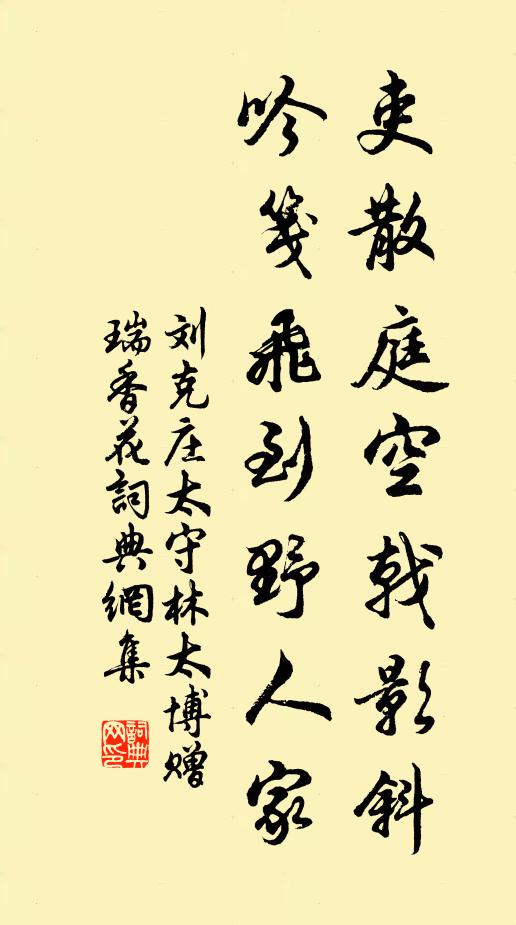 吏散庭空戟影斜
吟箋飛到野人家
刘克庄太守林太博赠
瑞香花詞典網集
詞典
网印